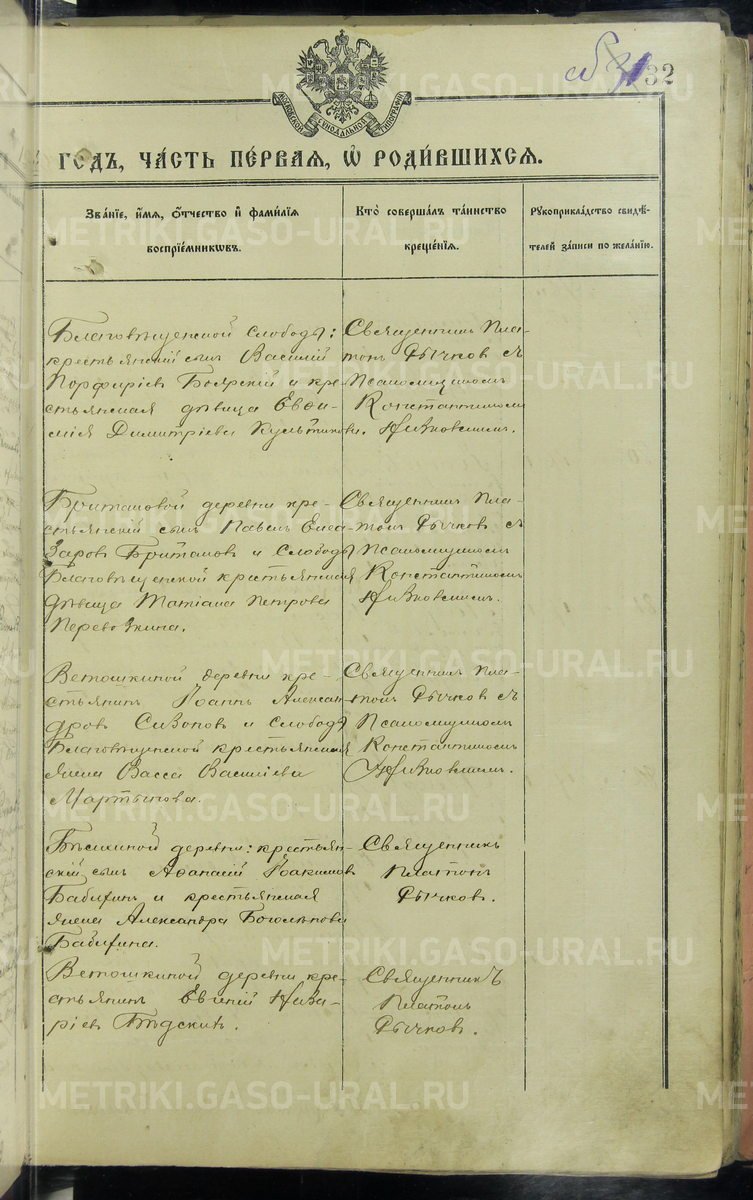 32
МОСКОВСКОЙ СѴНОДАЛЬНОЙ ТИПОГРАФІИ
ГОДЪ, ЧА́СТЬ ПЕ́РВАЯ, Ѡ РОДИ́ВШИХСЯ.
Зва́ніе, и́мя, о́тчество и фами́лія
воспріе́мниковъ.
Кто̀ соверша́лъ та́инство
креще́нія.
Рукоприкла́дство свидѣ́-
телей за́писи по жела́нію.
Благовѣщенской слободы:
крестьянскій сынъ Василій
Порфиріев Боярскій и кре-
стьянская дѣвица Евѳи-
мія Димитріева Культикова.
Священникъ Пла-
тонъ Рычков съ
Псаломщикомъ
Константиномъ
Британовой деревни кре-
стьянскій сынъ Павелъ Елеа-
заров Британовъ и Слободы
Благовѣщенской крестьянская
дѣвица Татіана Петрова
Перевозкина.
Священникъ Пла-
тонъ Рычков съ
Псаломщикомъ
Константиномъ
Ветошкиной деревни кре-
стьянинъ Іоаннъ Алексан-
дров Сизонов и Слободы
Благовѣщенской крестьянская
жена Васса Василіева
Мартынова.
Священникъ Пла-
тонъ Рычков съ
Псаломщикомъ
Константиномъ
деревни: крестьян-
скій сынъ Аѳанасій Іоакимов
Бабихин и крестьянская
жена Александра
Бабихина.
Священникъ
Платонъ
Рычков.
Ветошкиной деревни кре-
стьянинъ Евгеній Наза-
ріев
Священникъ
Платонъ
Рычков.
METRIKI.GASO-URAL.RU